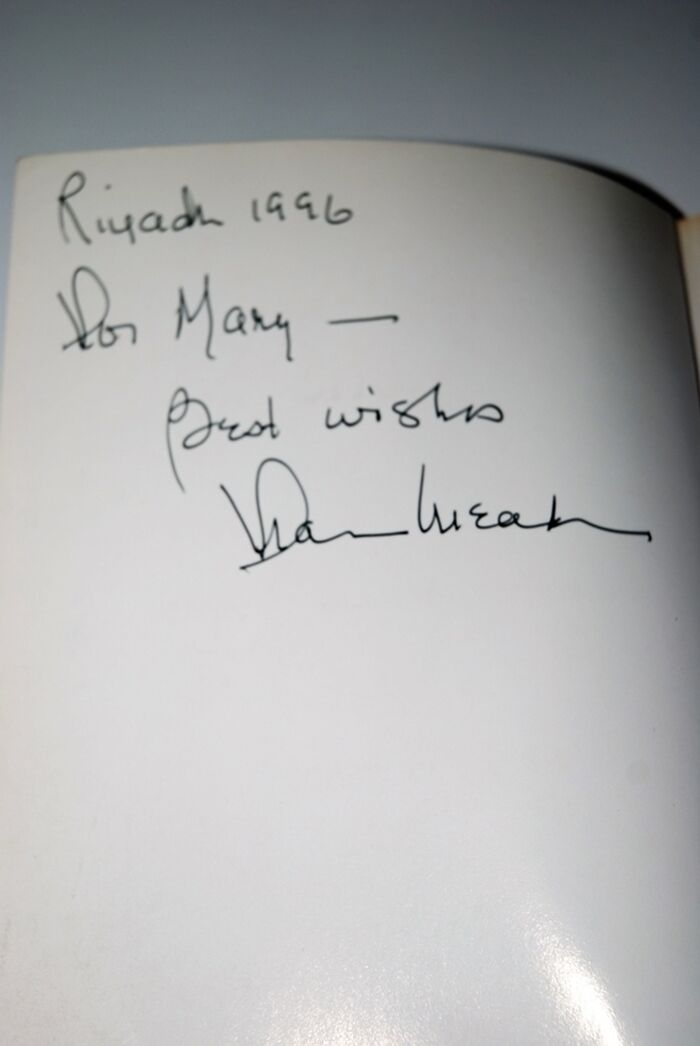 Riyadh 1996
For Mary —
Best wishes